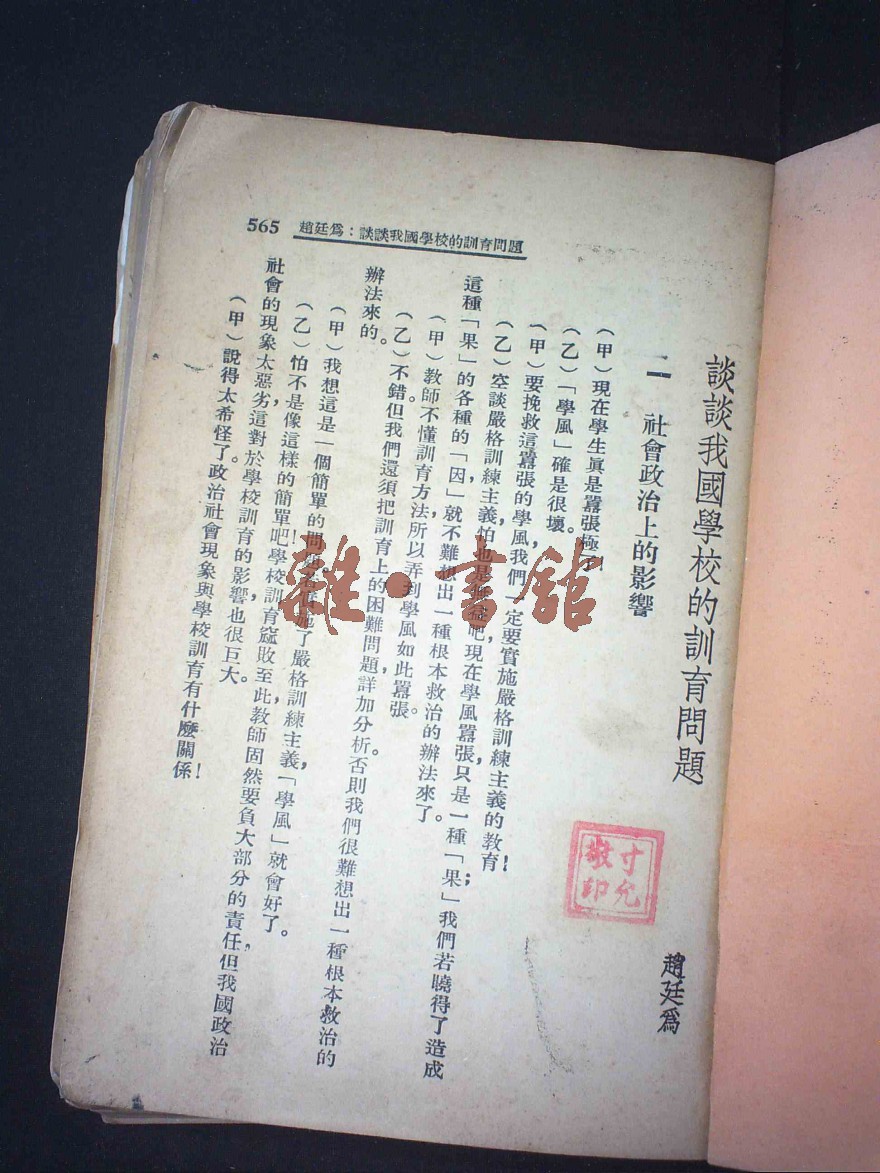 565 趙廷爲：談談我國學校的訓育問題
談談我國學校的訓育問題
趙廷爲
寸允敬印
二 社會政治上的影響
（甲）現在學生眞是囂張極了！
（乙）「學風」確是很壞。
（甲）要挽救這囂張的學風，我們一定要實施嚴格訓練主義的教育！
（乙）空談嚴格訓練主義，怕也是無益吧，現在學風囂張，只是一種「果」；我們若曉得了造成
這種「果」的各種的「因」，就不難想出一種根本救治的辦法來了。
（甲）教師不懂訓育方法，所以弄到學風如此囂張。
（乙）不錯。但我們還須把訓育上的困難問題，詳加分析。否則我們很難想出一種根本救治的
辦法來的。
（甲）我想這是一個簡單的問題。實施了嚴格訓練主義，「學風」就會好了。
（乙）怕不是像這樣的簡單吧！學校訓育竄敗至此，教師固然要負大部分的責任，但我國政治
社會的現象太惡劣，這對於學校訓育的影響也很巨大。
（甲）說得太希怪了。政治社會現象與學校訓育有什麼關係！
雜·書館